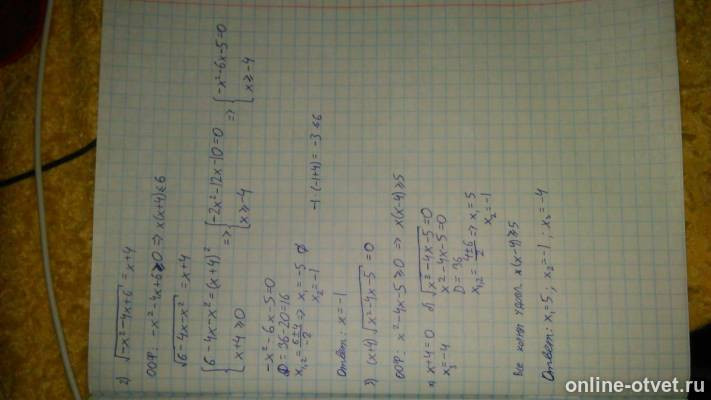 2) √-x²-4x+6 = x+4
ООФ: -x²-4x+6≥0 => x(x+4)≤6
√6-4x-x² = x+4
{6-4x-x²=(x+4)² => {-2x²-12x-10=0 => {-x²-6x-5=0
{x+4≥0 {x≥-4 {x≥-4
-x²-6x-5=0
D=36-20=16
x₁,₂=(6±4)/-2 => x₁=-5 ∅
x₂=-1 -1(-1+4)=-3≤6
Ответ: x=-1
3) (x+4)√x²-4x-5 = 0
ООФ: x²-4x-5≥0 => x(x-4)≥5
x+4=0 б) √x²-4x-5=0
x₃=-4 x²-4x-5=0
D=36
x₁,₂=(4±6)/2 => x₁=5
x₂=-1
Все корни удовл. x(x-4)≥5
Ответ: x₁=5; x₂=-1; x₃=-4
online-otvet.ru